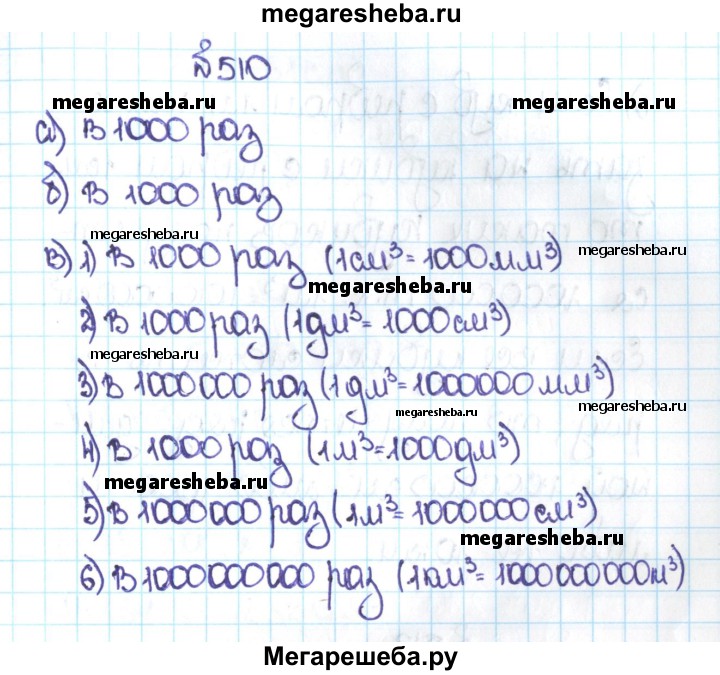 megaresheba.ru
№510
megaresheba.ru megaresheba.ru
а) В 1000 раз
б) В 1000 раз
megaresheba.ru
в) 1) В 1000 раз (1см³=1000мм³)
megaresheba.ru
megaresheba.ru
2) В 1000 раз (1дм³=1000см³)
megaresheba.ru
3) В 1000000 раз (1дм³=1000000мм³)
megaresheba.ru
megaresheba.ru
4) В 1000 раз (1м³=1000дм³)
megaresheba.ru
5) В 1000000 раз (1м³=1000000см³)
megaresheba.ru
6) В 1000000000 раз (1км³=1000000000м³)
Мегарешеба.ру